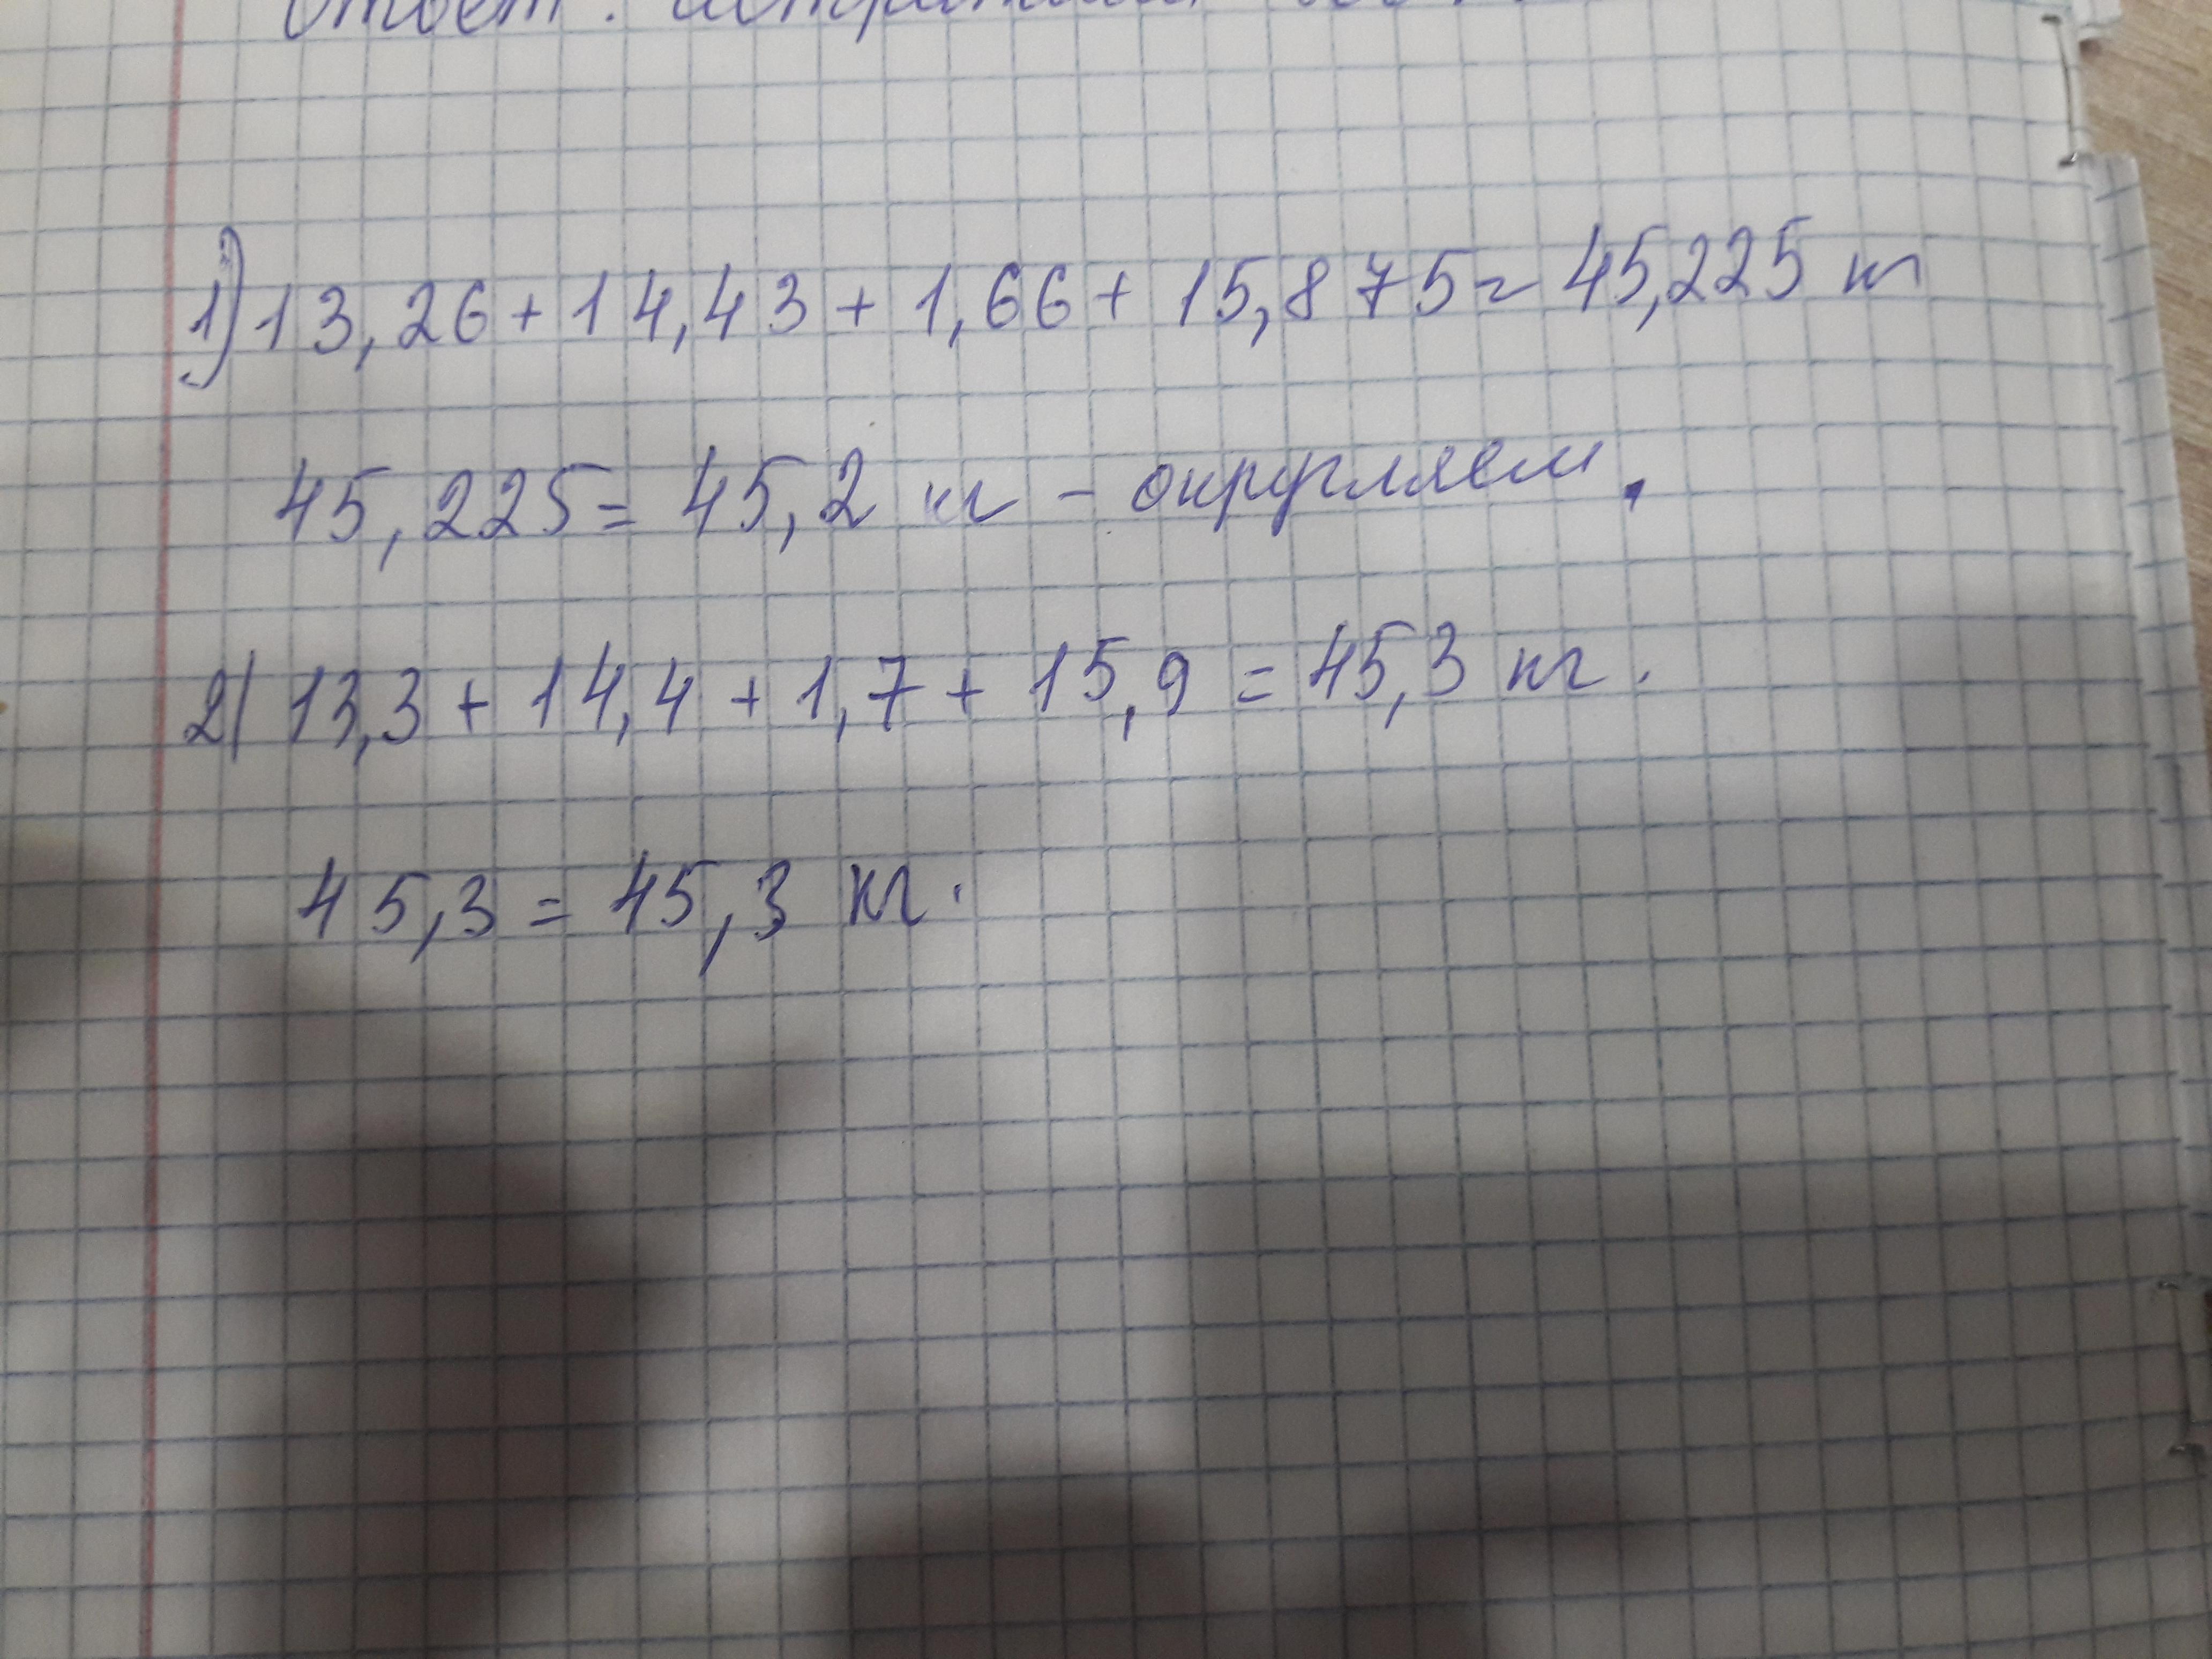 Ответ:
1) 13,26 + 14,43 + 1,66 + 15,875 = 45,225 кг
45,225 = 45,2 кг - округляем.
2) 13,3 + 14,4 + 1,7 + 15,9 = 45,3 кг.
45,3 = 45,3 кг.